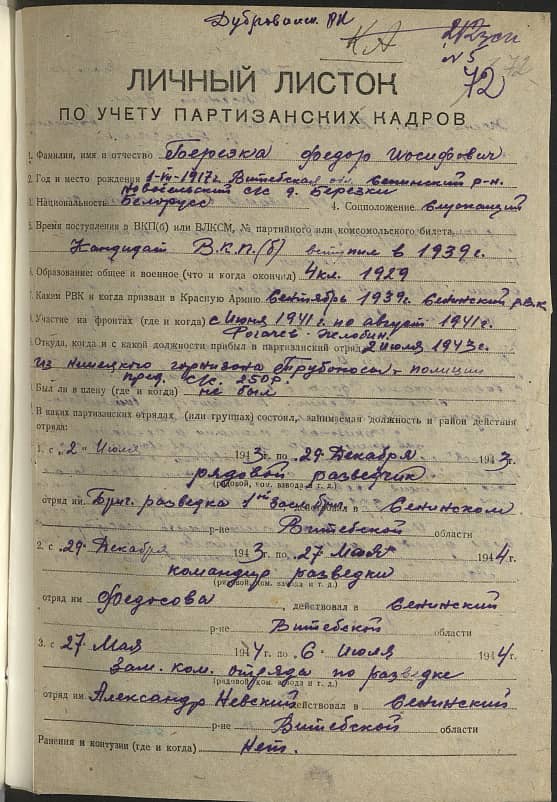 Дубровенск. РК
КА
212 зсп
№5
72
ЛИЧНЫЙ ЛИСТОК
ПО УЧЕТУ ПАРТИЗАНСКИХ КАДРОВ
1. Фамилия, имя и отчество Березка Федор Иосифович
2. Год и место рождения 1-VII-1917г. Витебская обл. Сенинский р-н.
Новосельский с/с д. Березки
3. Национальность Белорусс 4. Соцположение Служащий
5. Время поступления в ВКП(б) или ВЛКСМ, № партийного или комсомольского билета,
Кандидат В.К.П.(б) вступил в 1939г.
6. Образование: общее и военное (что и когда окончил) 4 кл. 1929
7. Каким РВК и когда призван в Красную Армию Сентябрь 1939г. Сенинский РВК
8. Участие на фронтах (где и когда) с Июня 1941г по август 1941г.
Рогачев Жлобин.
9. Откуда, когда и с какой должности прибыл в партизанский отряд 2 июля 1943г.
из немецкого гарнизона Трубоносы полиции
пред. с/с.
Был ли в плену (где и когда) не был
В каких партизанских отрядах (или группах) состоял, занимаемая должность и район действия
отряда:
1. с „2" Июля 1943г. по 29 Декабря 1943г.
рядовой разведчик
(рядовой, ком. взвода и т. д.)
отряд им. Бриг. разведка 1ой действовал в Сенинском
р-не Витебской области
2. с 29 Декабря 1943г. по 27 Мая 1944г.
командир разведки
(рядовой, ком. взвода и т. д.)
отряд им. Федосова, действовал в Сенинский
р-не Витебской области
3. с 27 Мая 1944г. по 6 Июля 1944г.
Зам. ком. отряда по разведке
(рядовой, ком. взвода и т. д.)
отряд им. Александр Невский действовал в Сенинский
р-не Витебской области
Ранения и контузии (где и когда) Нет.